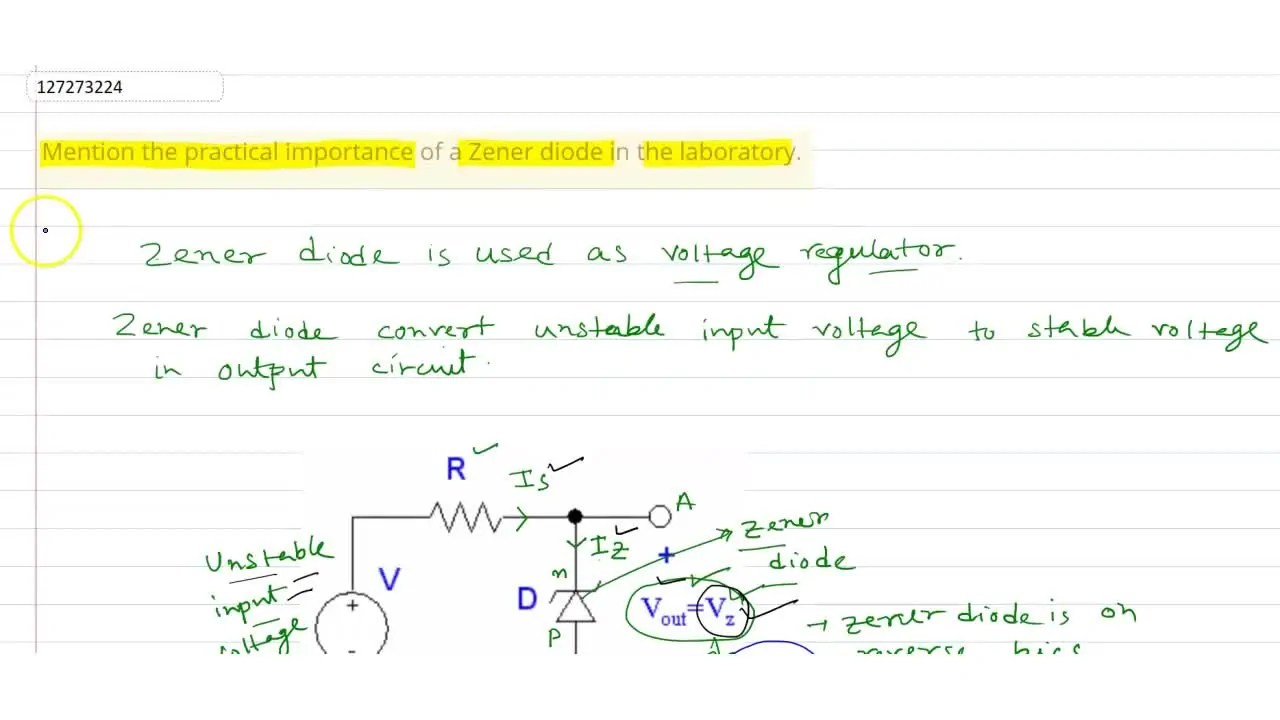 127273224
Mention the practical importance of a Zener diode in the laboratory.
Zener diode is used as voltage regulator.
Zener diode convert unstable input voltage to stable voltage
in output circuit.
R
Is
A
Iz
zener
diode
Unstable
input
voltage
V
+
-
n
D
P
+
Vout=Vz
→ zener diode is on
reverse bias